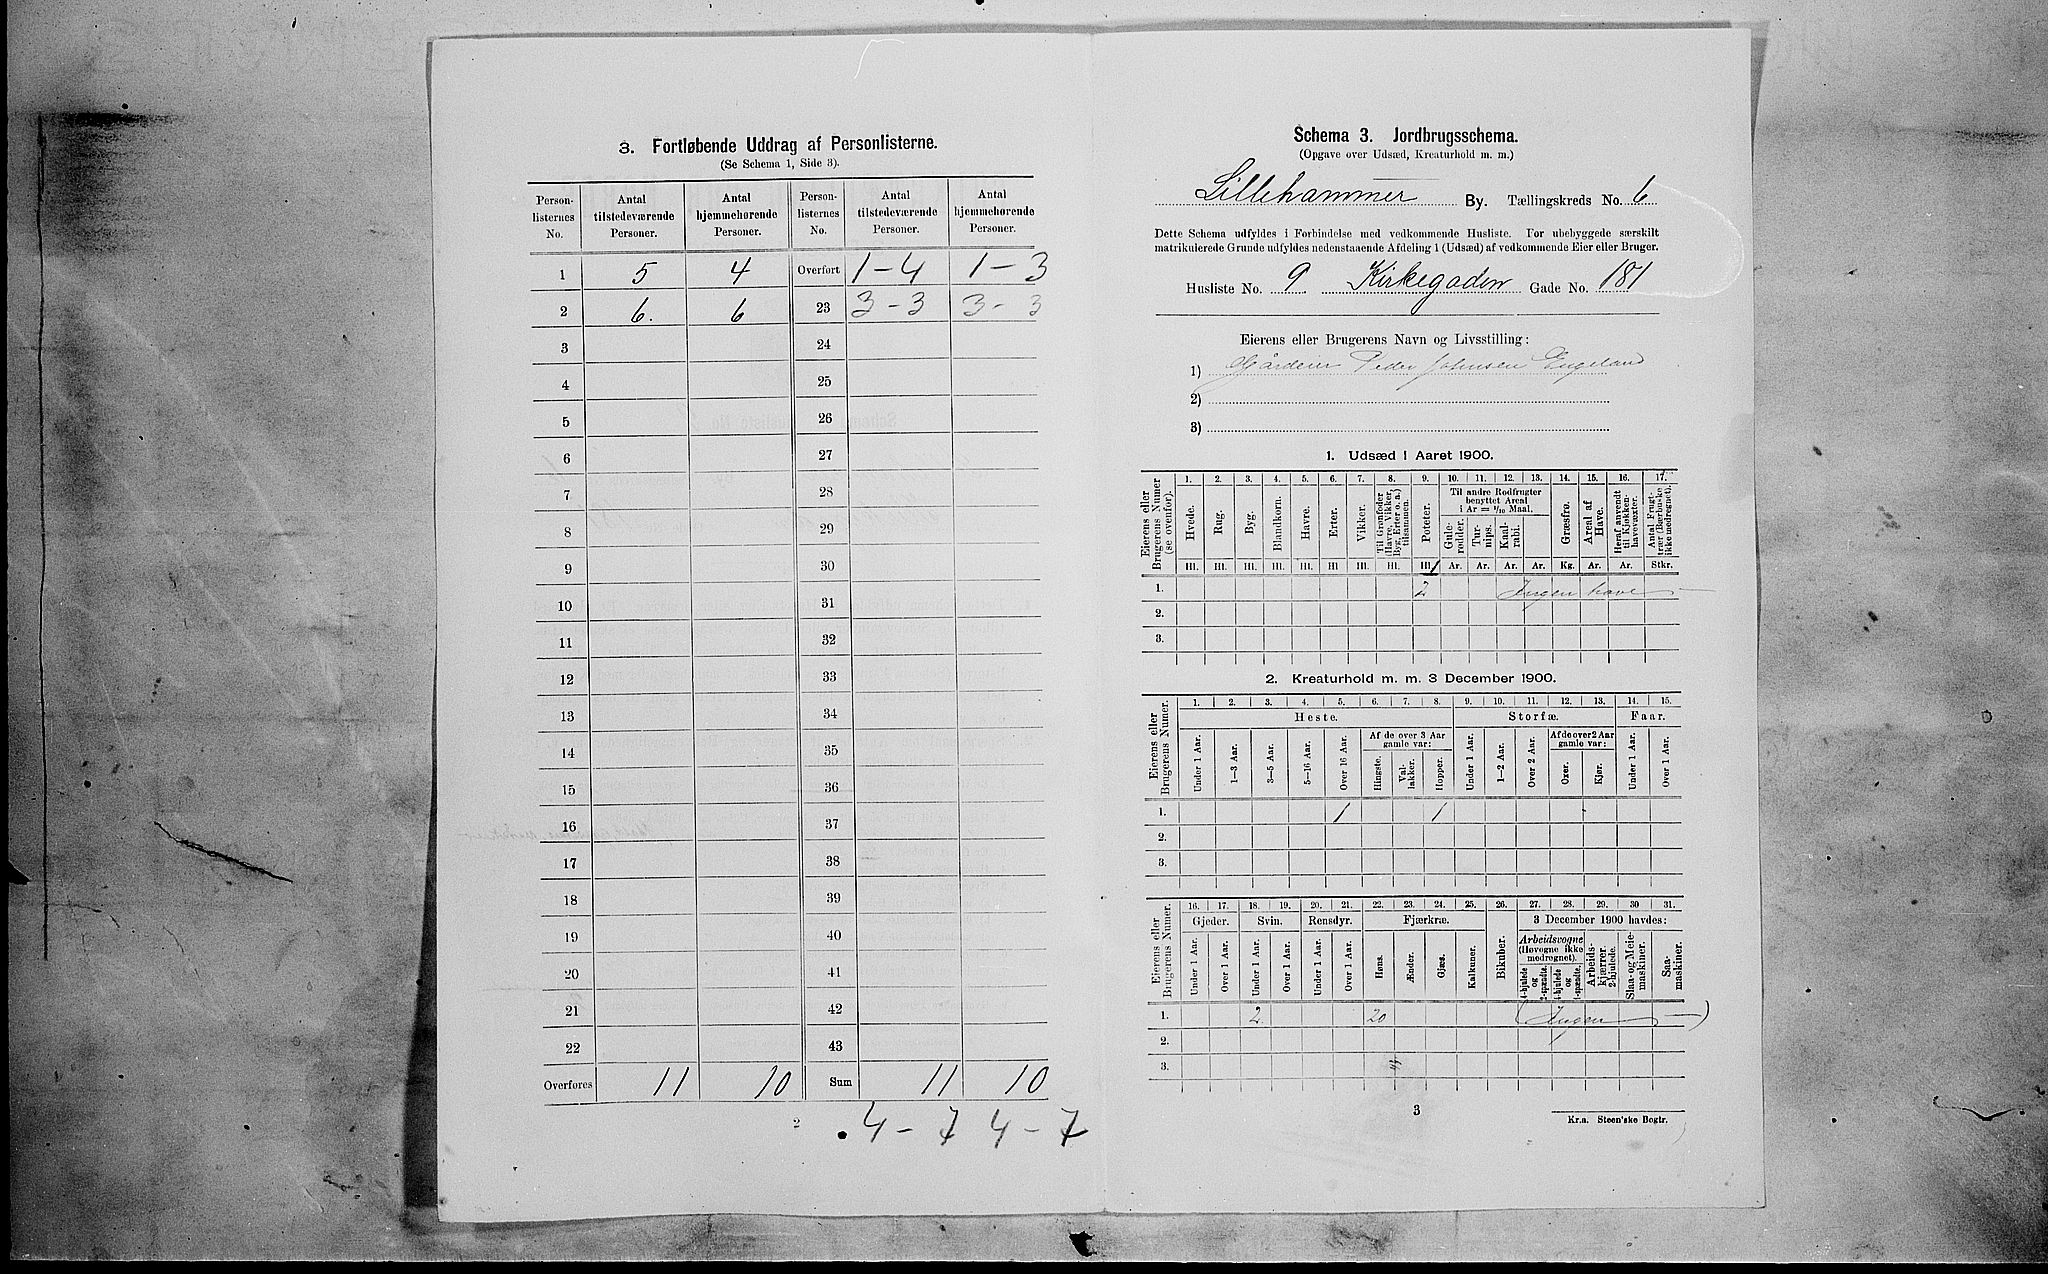 3. Fortløbende Uddrag af Personlisterne.
(Se Schema 1, Side 3).
Person-listernes No. | Antal tilstedeværende Personer. | Antal hjemmehørende Personer. | Person-listernes No. | Antal tilstedeværende Personer. | Antal hjemmehørende Personer.
1 | 5 | 4 | Overført | 1-4 | 1-3
2 | 6. | 6 | 23 | 3-3 | 3-3
3 | 24
4 | 25
5 | 26
6 | 27
7 | 28
8 | 29
9 | 30
10 | 31
11 | 32
12 | 33
13 | 34
14 | 35
15 | 36
16 | 37
17 | 38
18 | 39
19 | 40
20 | 41
21 | 42
22 | 43
Overføres | 11 | 10 | Sum | 11 | 10
4-7 4-7
2
Schema 3. Jordbrugsschema.
(Opgave over Udsæd, Kreaturhold m. m.)
Lillehammer By. Tællingskreds No. 6
Dette Schema udfyldes i Forbindelse med vedkommende Husliste. For ubebyggede særskilt
matrikulerede Grunde udfyldes nedenstaaende Afdeling 1 (Udsæd) af vedkommende Eier eller Bruger.
Husliste No. 9 Kirkegaden Gade No. 181
Eierens eller Brugerens Navn og Livsstilling:
1) Gårdeier Peder Johnsen Engeland
2)
3)
1. Udsæd i Aaret 1900.
1. 2. 3. 4. 5. 6. 7. 8. 9. 10. 11. 12. 13. 14. 15. 16. 17.
Eierens eller Brugerens Numer (se ovenfor).
Hvede. | Rug. | Byg. | Blandkorn. | Havre. | Erter. | Vikker. | Til Grønfoder (Havre, Vikker, Byg, Erter o. a.) tilsammen. | Poteter.
Til andre Rodfrugter benyttet Areal i Ar = 1/10 Maal.
Gule-rødder. | Tur-nips. | Kaal-rabi. | Græsfrø. | Areal af Have. | Heraf anvendt til Kjøkken-havevæxter. | Antal Frugt-trær (Bærbuske ikke medregnet).
Hl. Hl. Hl. Hl. Hl. Hl Hl. Hl. Hl. Ar. Ar. Ar. Ar. Kg. Ar. Ar. Stkr.
1. 2 Ingen have
2.
3.
2. Kreaturhold m. m. 3 December 1900.
1. 2. 3. 4. 5. 6. 7. 8. 9. 10. 11. 12. 13. 14. 15.
Eierens eller Brugerens Numer.
Heste. | Storfæ. | Faar.
Af de over 3 Aar gamle var: | Af de over 2 Aar gamle var:
Under 1 Aar. | 1—3 Aar. | 3—5 Aar. | 5—16 Aar. | Over 16 Aar. | Hingste. | Val-lakker. | Hopper. | Under 1 Aar. | 1—2 Aar. | Over 2 Aar. | Oxer. | Kjør. | Under 1 Aar. | Over 1 Aar.
1. 1 1
2.
3.
16. 17. 18. 19. 20. 21. 22. 23. 24. 25. 26. 27. 28. 29. 30 31.
Eierens eller Brugerens Numer.
Gjeder. | Svin. | Rensdyr. | Fjærkræ. | Bikuber. | 3 December 1900 havdes:
Under 1 Aar. | Over 1 Aar. | Under 1 Aar. | Over 1 Aar. | Under 1 Aar. | Over 1 Aar. | Høns. | Ænder. | Gjæs. | Kalkuner.
Arbeidsvogne (Hovogne ikke medregnet). | 4-hjulede og 2-spændte. | 4-hjulede og 1-spændte. | Arbeids-kjærrer, 2-hjulede. | Slaa- og Meie-maskiner. | Saa-maskiner.
1. 2. 20 (Ingen)
2.
3.
3
Kr.a. Steen'ske Bogtr.